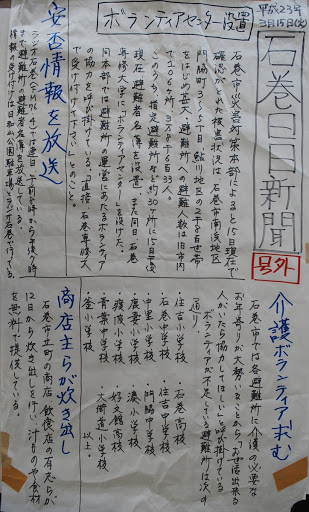 平成23年
3月15日(火)
石巻日日新聞
号外
ボランティアセンター設置
石巻市災害対策本部によると15日現在で
確認がとれた被災状況は、石巻市南浜地区
門脇町 5丁目、鮎川地区の2千 世帯
をはじめ甚大。避難所への避難人数は旧市内
で106ヶ所、3万 633人。
このうち指定避難所など約30ヶ所に15日午後
現在、避難者名簿を設置。また同日、石巻
専修大学に「ボランティアセンター」を設けた。
同本部では避難所の運営にあたるボランティア
の協力を呼び掛けている。「直接、石巻専修大
で受け付けて下さい」とのこと。
安否情報を放送
ラジオ石巻(FM76.4)では連日、午前 時から午後7時
まで避難所の避難者名簿を放送している。
情報の受け付けは日和山公園駐車場とラジオ石巻で行っている。
介護ボランティア求む
石巻市では各避難所に介護の必要な
お年寄りが大勢いることから「お世話出来る
かたがいたら協力してほしい」と呼び掛けている
ボランティアが不足している避難所は次の
通り。
・住吉小学校 ・石巻高校
・石巻中学校 ・住吉中学校
・中里小学校 ・門脇中学校
・鹿妻小学校 ・湊小学校
・渡波小学校 ・好文館高校
・青葉中学校 ・大街道小学校
・釜小学校 以上。
商店主らが炊き出し
石巻市立町の商店、飲食店の有志らが
12日から炊き出しを行い、汁ものや食材
を無料で提供している。